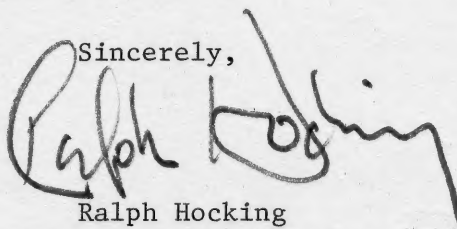 Sincerely,
Ralph Hocking
Ralph Hocking